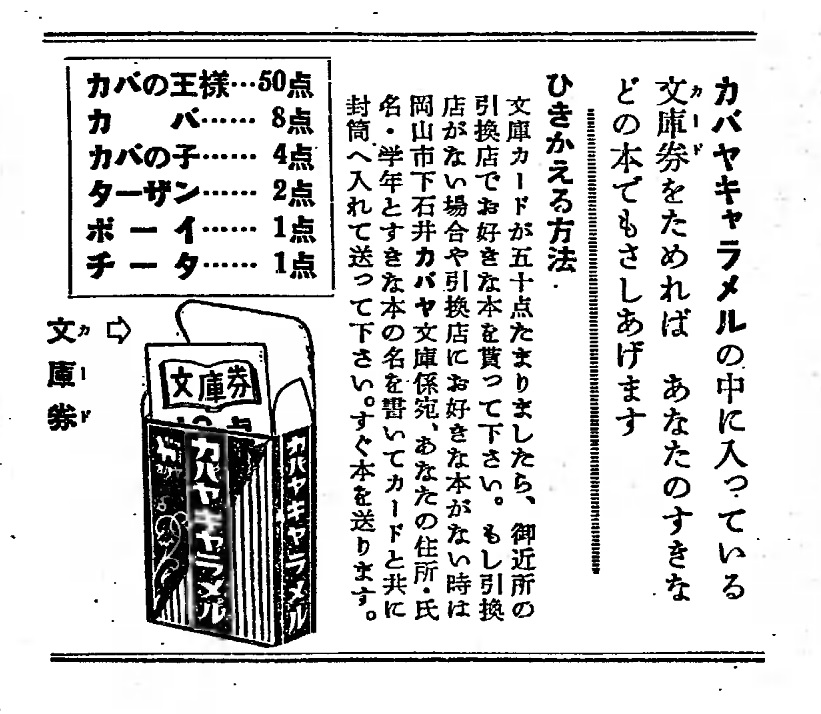 カバヤキャラメルの中に入っている
文庫券をためれば あなたのすきな
カード
どの本でもさしあげます
ひきかえる方法
文庫カードが五十点たまりましたら、御近所の
引換店でお好きな本を貰って下さい。もし引換
店がない場合や引換店にお好きな本がない時は
岡山市下石井カバヤ文庫係宛、あなたの住所・氏
名・学年とすきな本の名を書いてカードと共に
封筒へ入れて送って下さい。すぐ本を送ります。
カバの王様…50点
カバ……8点
カバの子……4点
ターザン……2点
ボーイ……1点
チータ……1点
文庫券
カード
文庫券
カバヤキャラメル
カバヤキャラメル